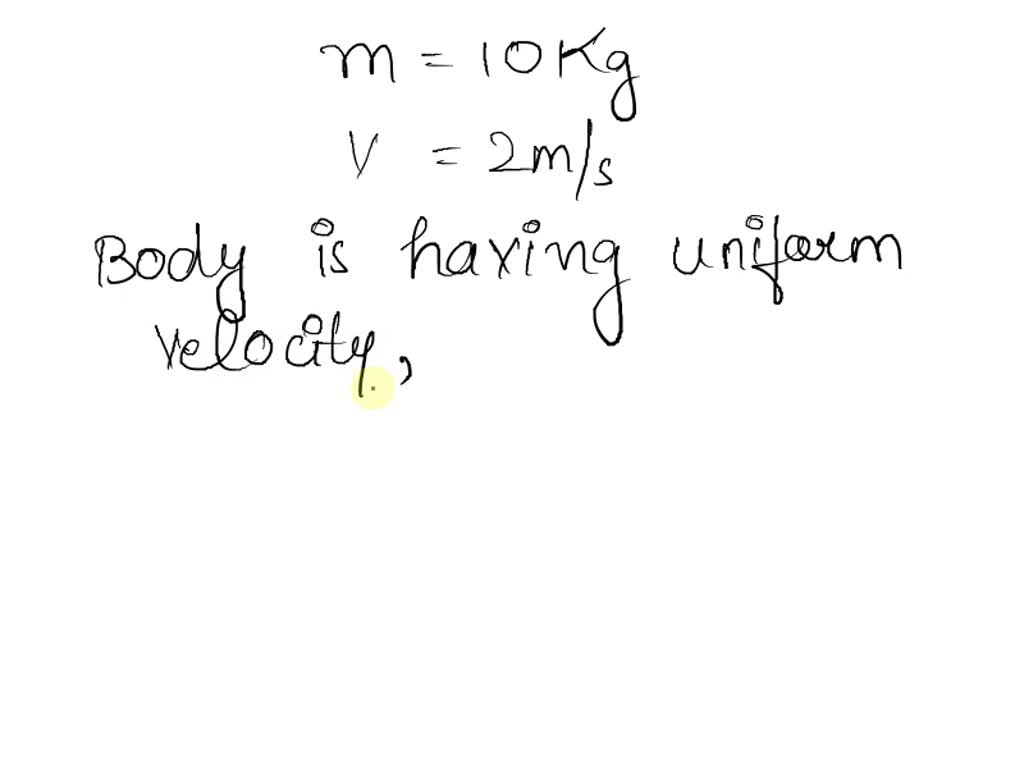 m = 10 Kg
V = 2 m/s
Body is having uniform
velocity,